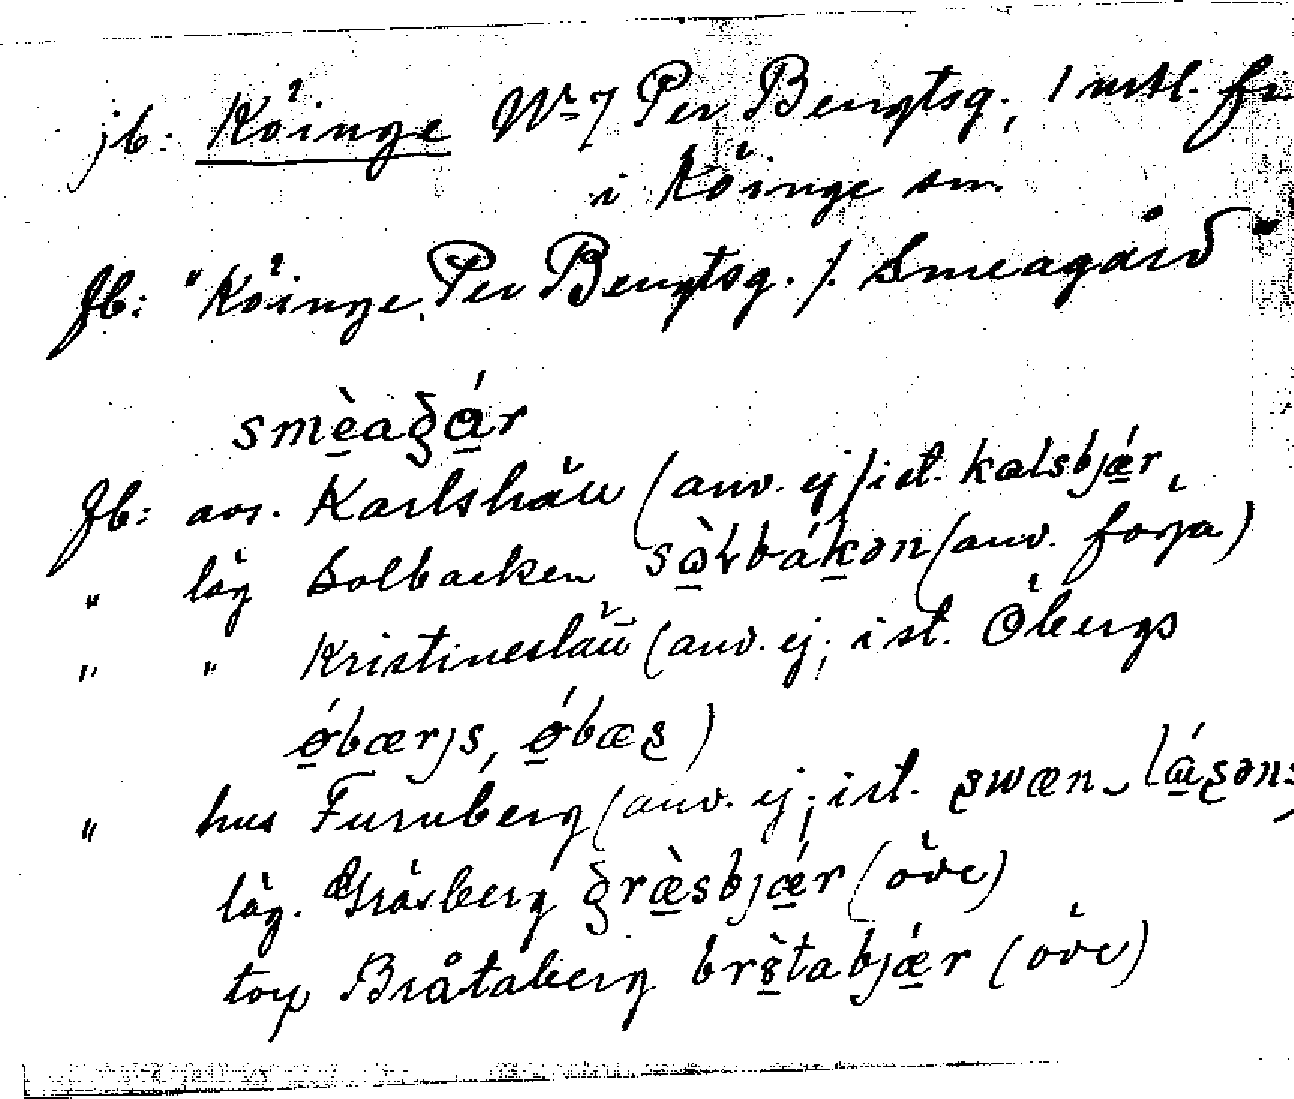 jb: Köinge Nr 7 Per Bengtsg., 1 mtl. fr
i Köinge sn.
Jb: "Köinge Per Bengtsg. /. Smeagård"
smèagár
Jb: avs. Karlshäll (anv. ej) ist. kalsbjǽr,
" läg Solbacken sɷ̀ɫbákən (anv. förra)
" " Kristineslätt (anv. ej; i st. Öbergs
ǿbærjs, ǿbæʂ)
" hus Furuberg (anv. ej; ist. ʂwæn lɷ́ʂəns
läg. Gräsberg græ̀sbjǽr (öde)
torp Bråtaberg br tabjǽr (öde)